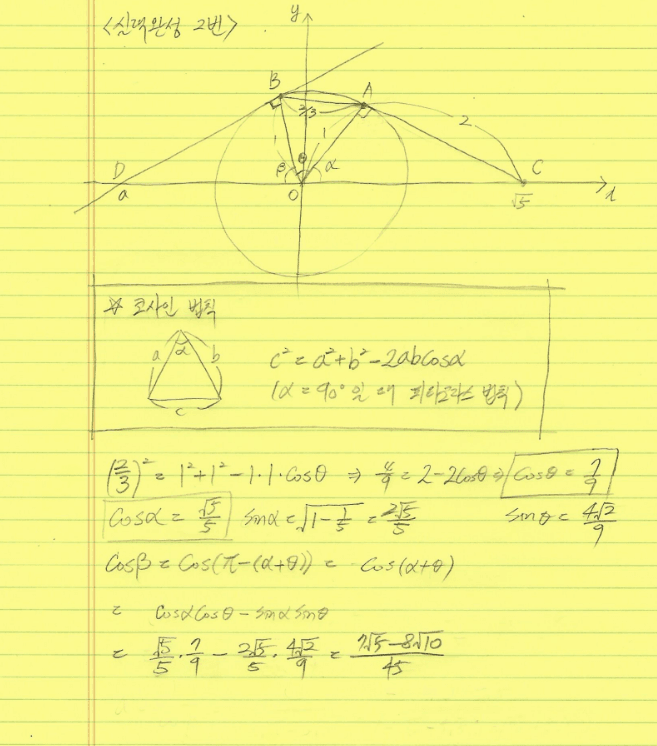 <실력완성 2번>
y
B
A
2/3
2
1
1
D
β
θ
α
C
a
O
√5
x
☆ 코사인 법칙
a
α
b
c² = a² + b² - 2ab cosα
(α = 90° 일 때 피타고라스 법칙)
c
(2/3)² = 1² + 1² - 1·1·cosθ ⇒ 4/9 = 2 - 2cosθ ⇒ cosθ = 7/9
cosα = √5/5 sinα = √(1 - 1/5) = 2√5/5 sinθ = 4√2/9
cosβ = cos(π - (α+θ)) = cos(α+θ)
= cosα cosθ - sinα sinθ
= √5/5 · 7/9 - 2√5/5 · 4√2/9 = (7√5 - 8√10)/45